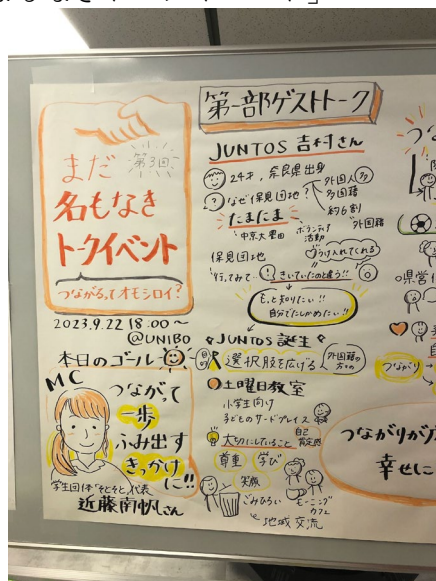 第3回
まだ
名もなき
トークイベント
つながるってオモシロイ?
2023.9.22 18:00～
@UNIBO
本日のゴール
MC
つながって
一歩
ふみ出す
きっかけ
に!!
学生団体"そとそと"代表
近藤南帆さん
第一部ゲストトーク
JUNTOS 吉村さん
24才、奈良県出身
なぜ保見団地?
外国人 多
多国籍
約6割
外国籍
たまたま
中京大 豊田
ボランティア
活動
保見団地
うけ入れてくれる
行ってみて
きいていたのと違う!!
もっと知りたい!!
自分でたしかめたい!!
JUNTOS 誕生
目的
選択肢を広げる
外国籍の
方々の
土曜日教室
小学生向け
子どものサードプレイス
大切にしていること
自己
肯定感
尊重
学び
笑顔
ごみひろい
モーニング
カフェ
地域交流
つながり
つながりが
幸せに